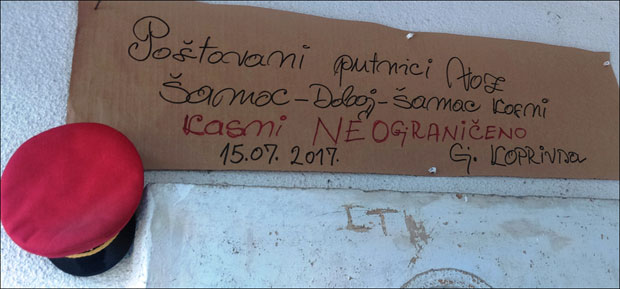 Poštovani putnici Voz
Šamac-Doboj-Šamac kasni
kasni NEOGRANIČENO
15.07.2017. Gj. KOPRIVICA
LT